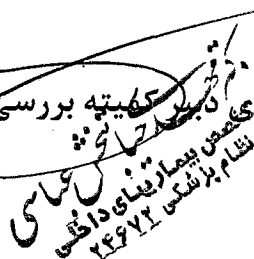 دبیر کمیته بررسی
عباسی
متخصص بیماریهای داخلی
نظام پزشکی ۲۴۶۷۲